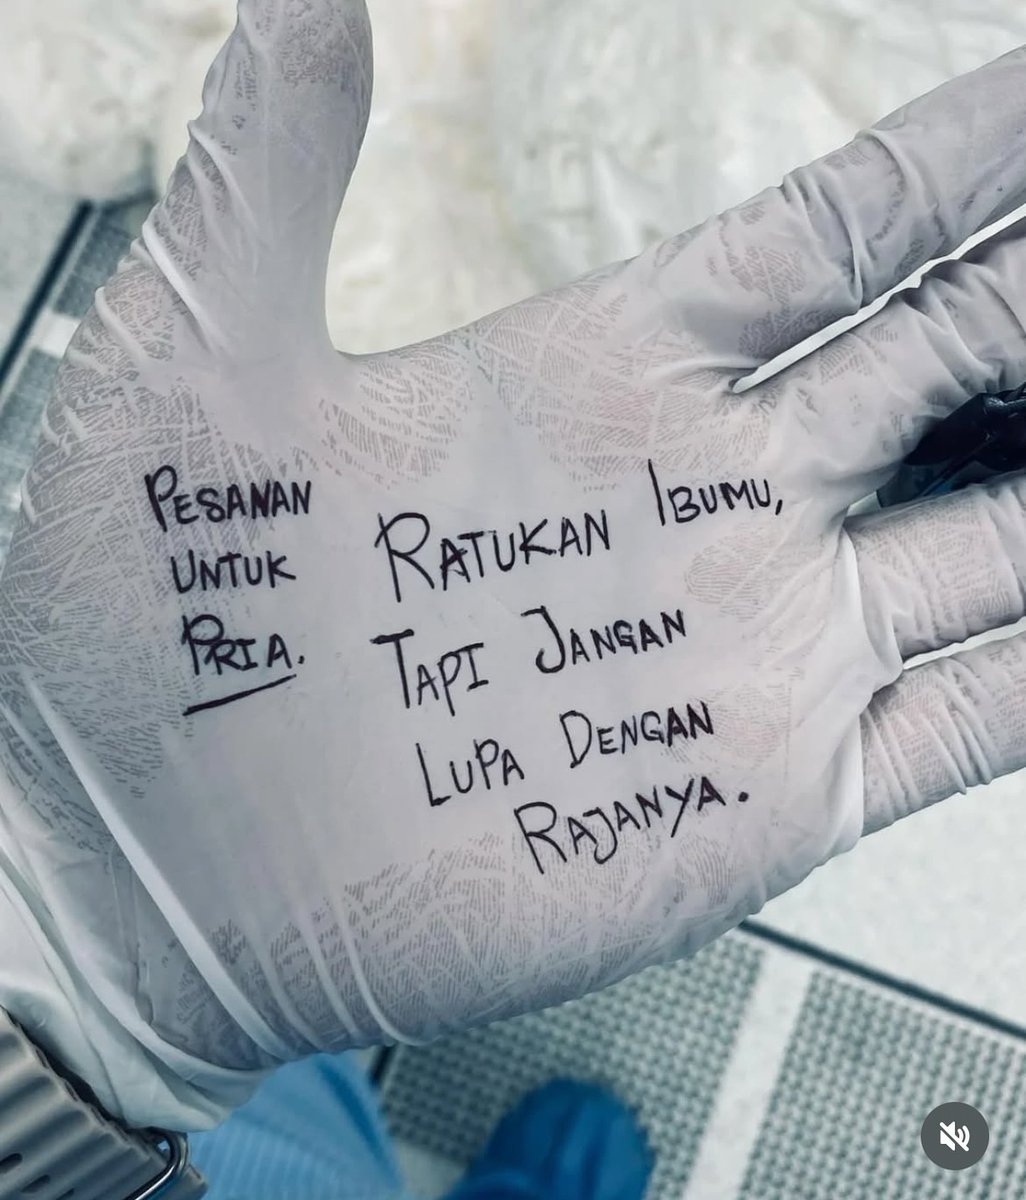 PESANAN
UNTUK
PRIA.
RATUKAN IBUMU,
TAPI JANGAN
LUPA DENGAN
RAJANYA.